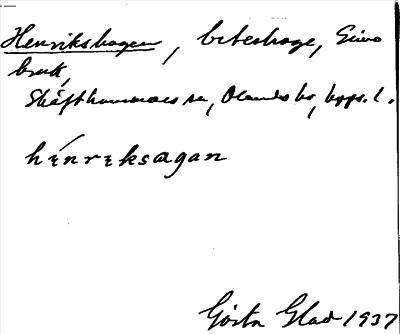 Henrikshagen, beteshage, Gimo
bruk,
Skäfthammars sn, Olands hd, Uppl.
hínriksagan
Gösta Glad 1937